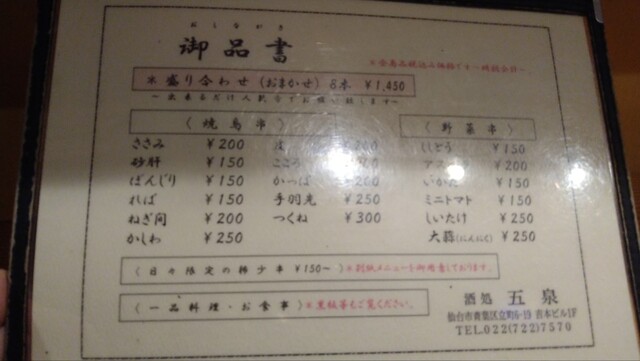 おしながき
御品書
※全商品税込み価格です
※ 盛り合わせ（おまかせ）8本 ￥1,450
〈 焼鳥串 〉
〈 野菜串 〉
ささみ ￥200 皮
ししとう ￥150
砂肝 ￥150 こころ
￥200
ぼんじり ￥150 かっぱ
￥150
ればー ￥150 手羽先 ￥250
ミニトマト ￥150
ねぎ間 ￥200 つくね ￥300
しいたけ ￥250
かしわ ￥250
大蒜（にんにく） ￥250
〈 日々限定の稀少串 ￥150〜 〉※別紙メニューを御用意しております。
〈 一品料理・お食事 〉※黒板等もご覧ください。
酒処 五泉
仙台市青葉区立町6-19 吉本ビル1F
TEL.022(722)7570